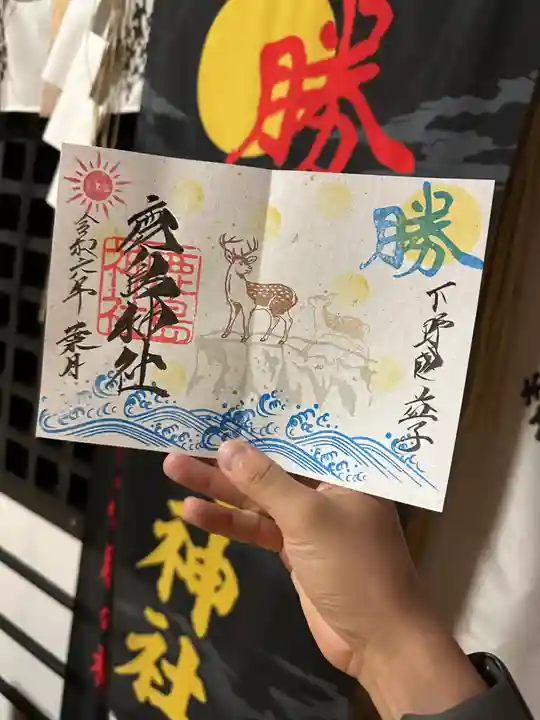 勝
勝
下野國 益子
鹿島神社
鹿島
神社
令和六年 葉月
神社